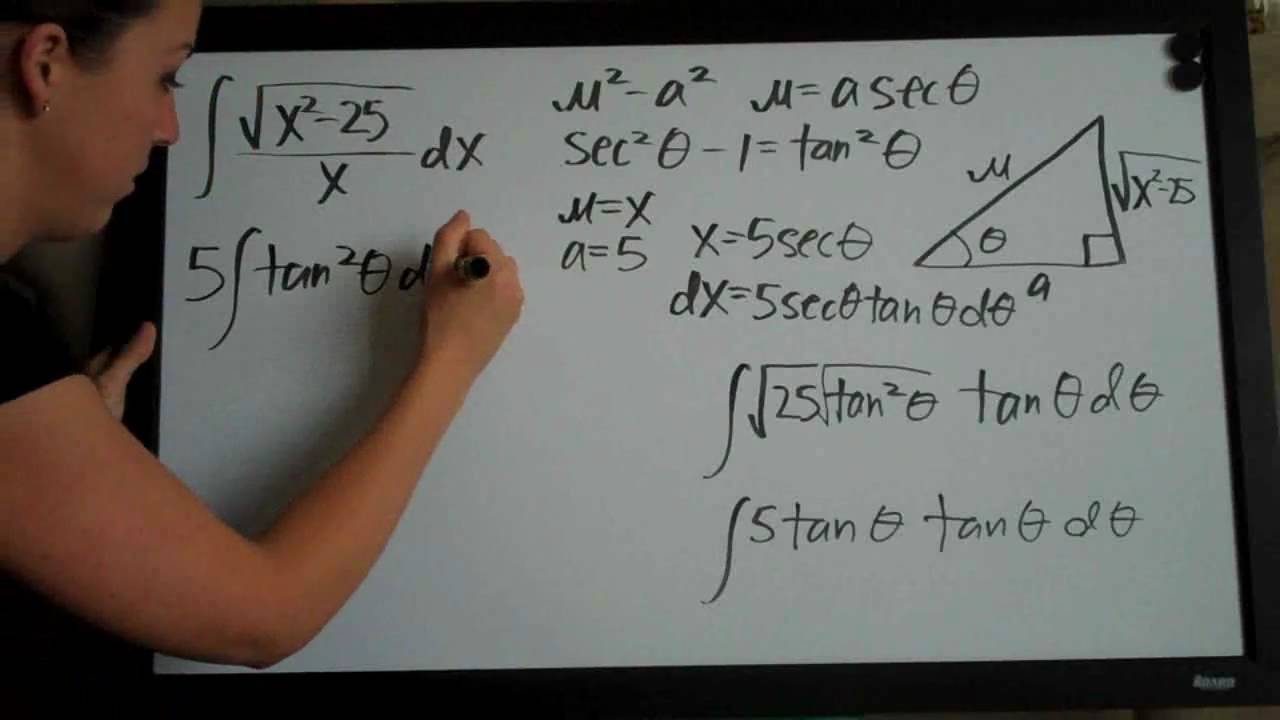 ∫ √(x²-25) / x dx
5∫tan²θ d
u²-a² u=a secθ
sec²θ-1=tan²θ
u=x
a=5
x=5secθ
dx=5secθtanθdθ
u
√x²-25
θ
a
∫√25√tan²θ tanθdθ
∫5tanθ tanθdθ
Board